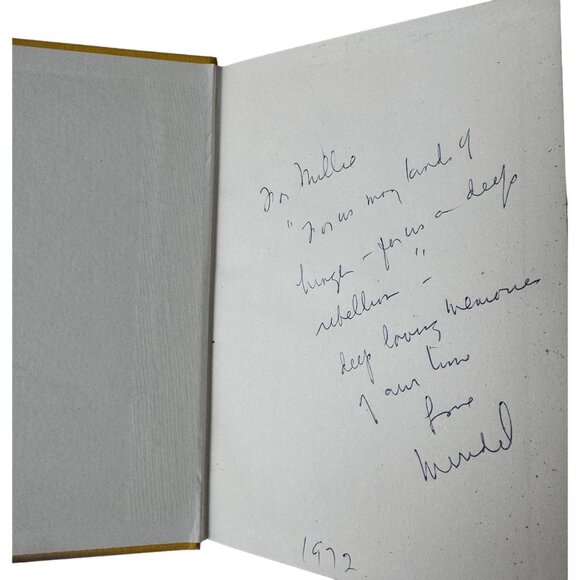 For Millie
"For us many kinds of
hunger – for us a deep
rebellion" –
deep loving memories
of our time
Love
1972